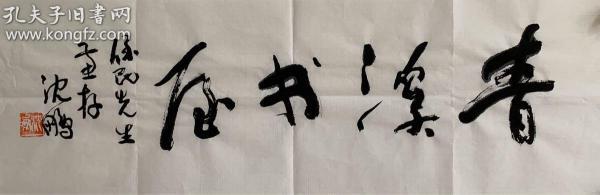 青溪书屋
先生
沈鹏
孔夫子旧书网
www.kongfz.com